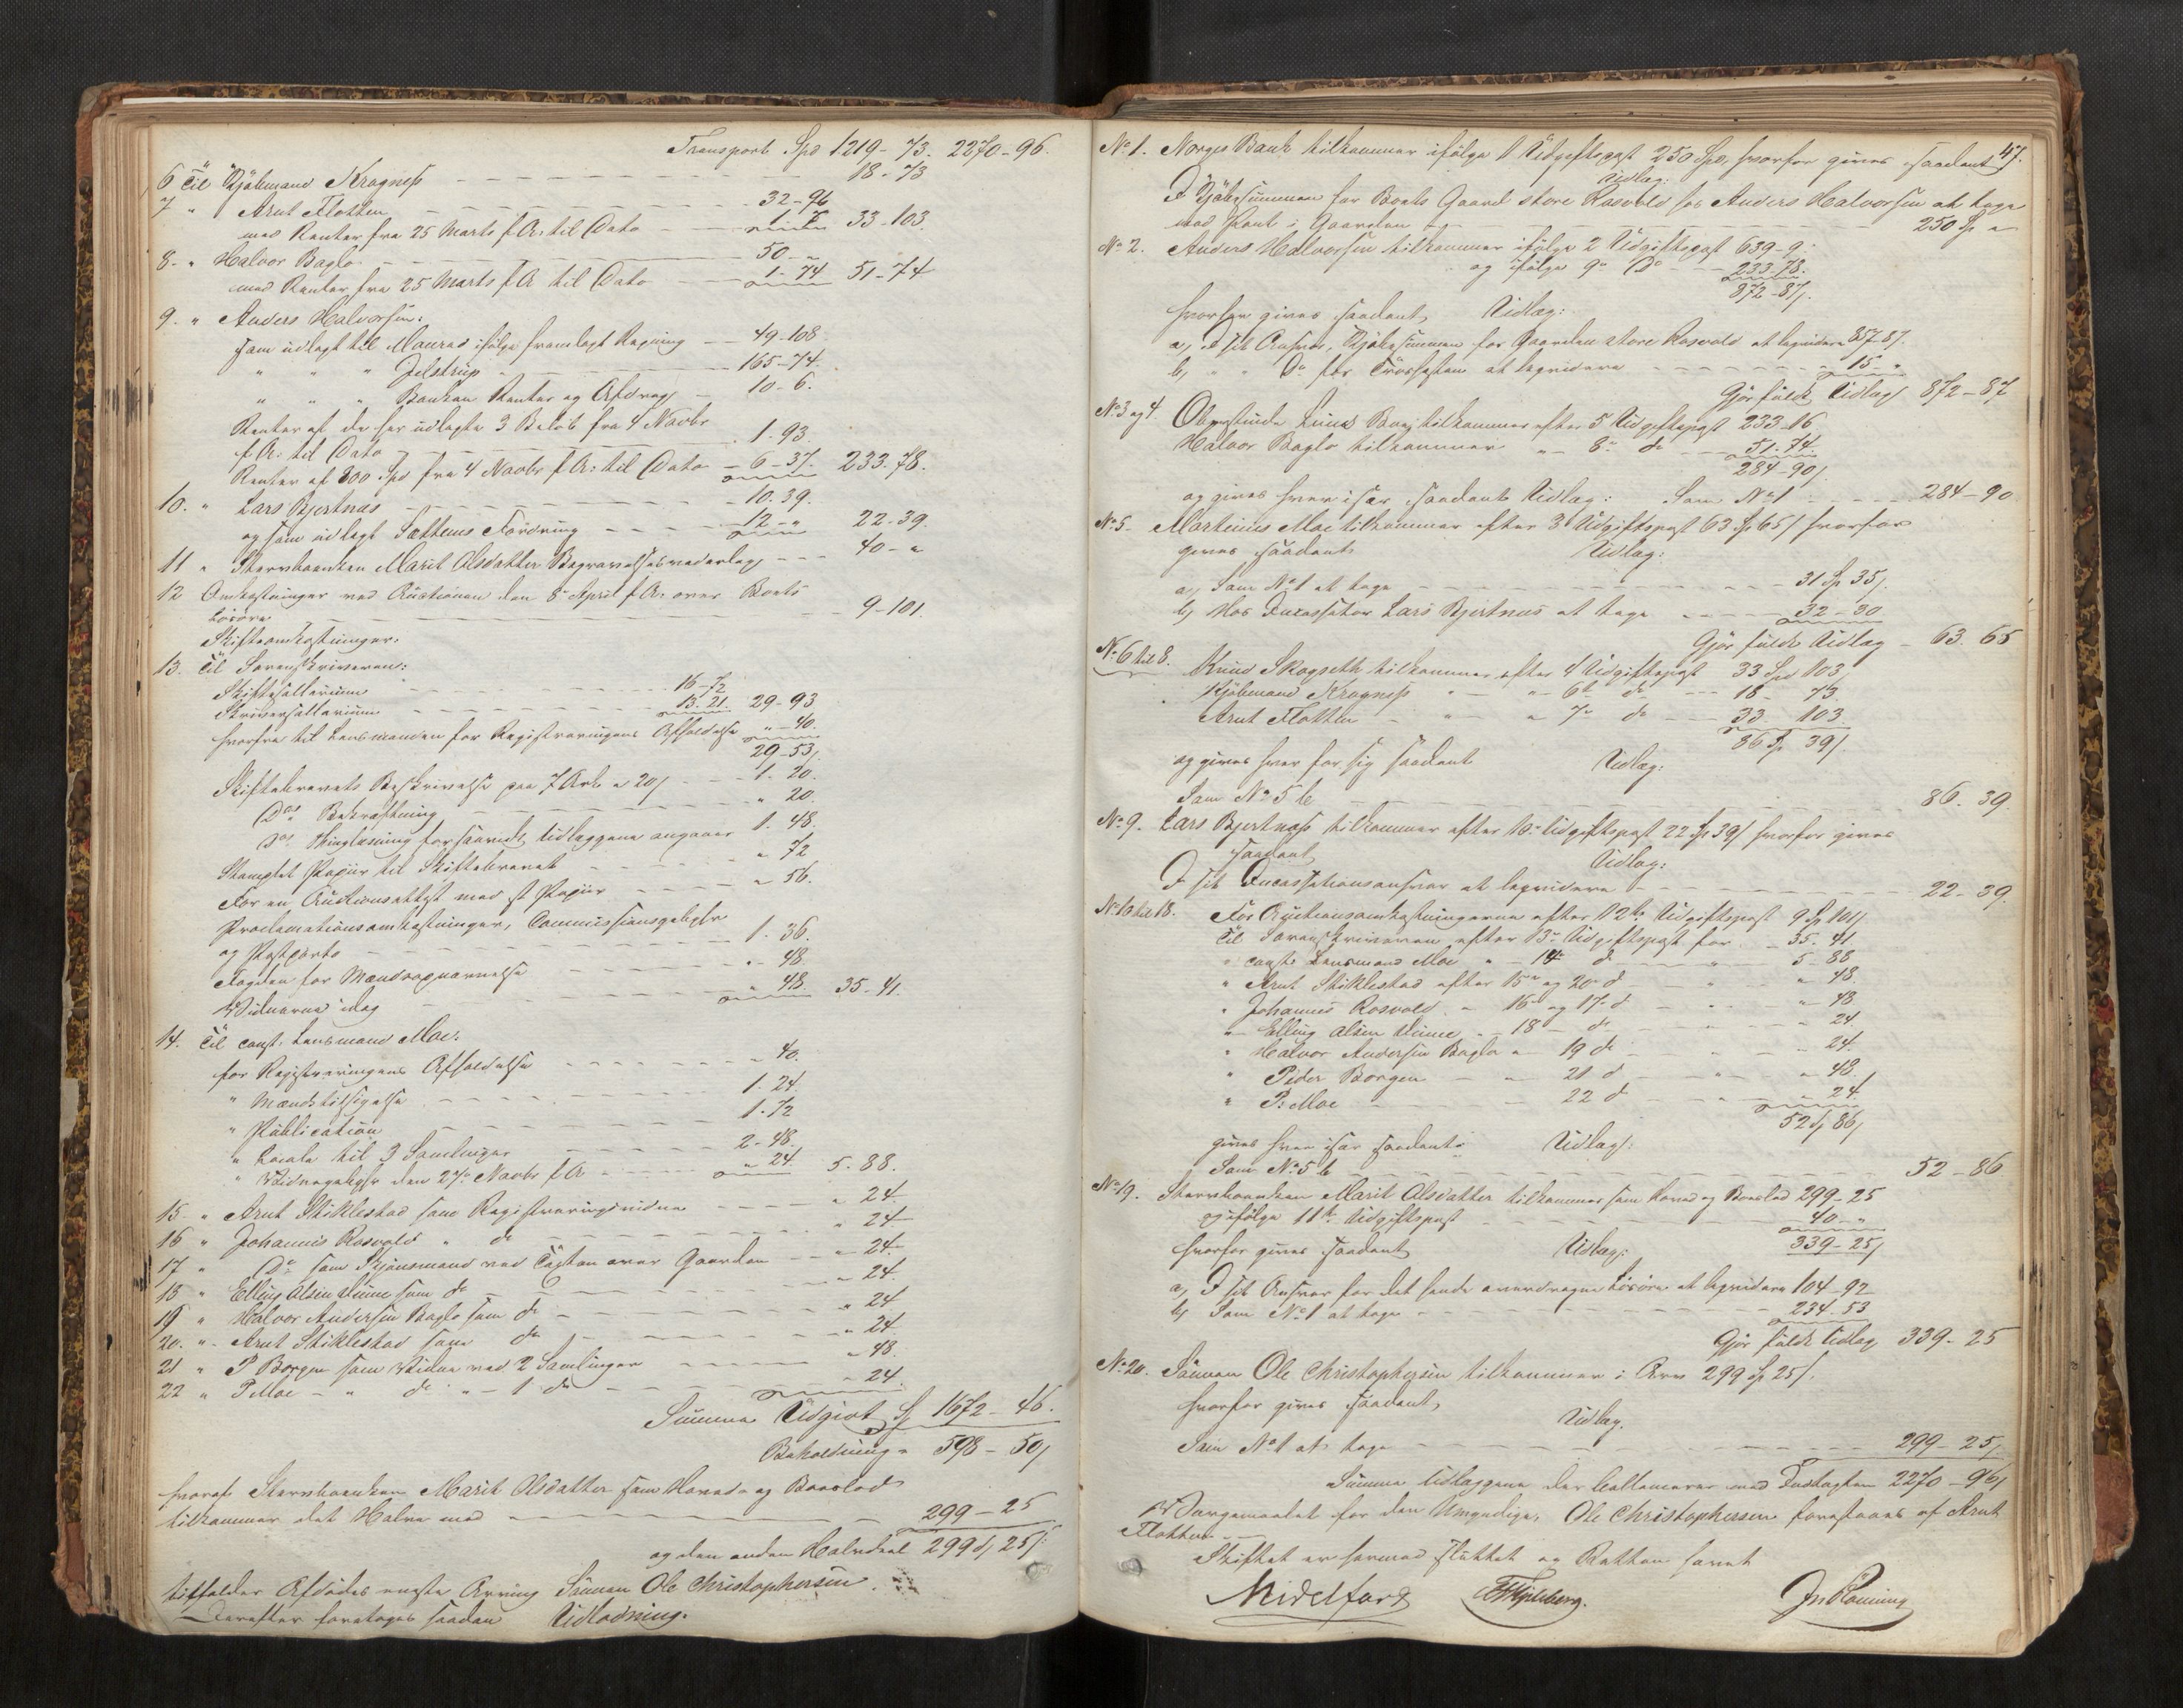 Transport Spd 1219-73. 2270-96.
6 Til Kjöbmand Kragness - - - 18-73
7 " Arnt Flotten - - - 32-96
med Renter fra 25 Marts f A: til Dato - - 1-7 33-103.
8 - " Halvor Baglo - - - 50-"
med Renter fra 25 Marts f A til Dato - - 1-74 51-74
9. " Anders Halvorsen:
som udlagt til Maurad ifølge fremlagt Regning - - 49-108.
" " " Jelstrup - - - 165-74.
" " " Banken Renter og Afdrag - 10-6.
Renter af de her udlagte 3 Beløb fra 4 Novbr
f A: til Dato - - - 1.93.
Renter af 200 Spd fra 4 Novbr f A: til Dato - 6-37. 233.78.
10. " Lars Bjertnæs - - - 10.39.
og som udlagt Sættems Fordring - - - 12-" 22-39.
11 " Stervboenken Marit Olsdatter Begravelsesvederlag - - - 40-"
12 Omkostninger ved Auctionen den 8de April f A: over Boets
Løsøre - - - 9-101.
Skifteomkostninger:
13. Til Sorenskriveren:
Skiftesallarium - - - 16-72
Skriversallarium - - - 13.21. 29-93
hvorfra til Lensmanden for Registreringens Afholdelse "-40.
29-53
Skiftebrevets Beskrivelse paa 7 Ark a 20 - - 1. 20.
Ds Bekræftning - - - " 20.
Ds Thinglæsning forsaavidt Udlæggene angaaer 1. 48.
Stemplet Papiir til Skiftebrevet - - - " 72
For en Auctionsattest med st Papiir - - - " 56.
Proclamationsomkostninger, Commissionsgebyhr
og Postporto - - - 1. 36.
Fogden for Mændsopnævnelse - - - " 48.
Vidnerne idag - - - " 48. 35-41.
14. Til const. Lensmand Moe:
for Registreringens Afholdelse - - - " 40.
" Mændstilsigelse - - - 1. 24.
" Publication - - - 1.72
" Locale til 3 Samlinger - - - 2-48.
" Vidnegebyhr den 27de Novbr f A - - - " 24. 5.88.
15 - " Arnt Stiklestad som Registreringsvidne - - - " 24
16 " Johannis Rosvold " do - - - " 24
17 " Do som Skjönsmand ved Taxten over Gaarden - - " 24.
18 " Elling Olsen Vinne som do - - - " 24.
19 " Halvor Andersen Baglo som do - - - " 24
20. " Arnt Stiklestad som do - - - " 24
21 " P Borgen som Vidne ved 2 Samlinger - - - " 48.
22 " P Moe - " do " - 1 do - - - " 24.
Summa Udgivt Sp 1672-46.
Beholdning " 598-50
hvoraf Stervboenken Marit Olsdatter som Hoved- og Boeslod
tilkommer det Halve med - - - 299-25
og den anden Halvdeel 299 Sp 25
tilfalder Afdødes eneste Arving Sönnen Ole Christophersen.
Derefter foretoges saadan Udlodning.
47.
No 1. Norges Bank tilkommer ifølge 1 Udgiftspost 250 Spd, hvorfor gives saadant
Udlæg:
I Kjöbesummen for Boets Gaard store Rosvold hos Anders Halvorsen at tage
med Pant i Gaarden - - - 250 Sp "
No 2. Anders Halvorsen tilkommer ifølge 2 Udgiftspost 639-9.
og ifølge 9de Do - - 233.78.
872-87
hvorfor gives saadant Udlæg:
a, I sit Ansvar, Kjöbesummen for Gaarden store Rosvold at leqvidere 857.87.
b, " " Do for at leqvidere - - - 15-"
Gjør fuldt Udlæg 872-87
No 3 og 4. Knud tilkommer efter 5 Udgiftspost 233-16
Halvor Baglo tilkommer " - 8de do - - 51-74
284-90
og gives hver især saadant Udlæg: Som No 1 - - - 284-90
No 5. Martinus Moe tilkommer efter 3de Udgiftspost 63 Sp 65 hvorfor
gives saadant Udlæg:
a, Som No 1 at tage - - - 31 Sp 35
b, Hos Incassator Lars Bjertnæs at tage - - - 32-30
Gjør fuldt Udlæg - 63.65
No 6 til 8. Knud Skogseth tilkommer efter 4 Udgiftspost 33 Spd 103
Kjöbmand Kragness - " - " 6te do - - 18-73
Arnt Flotten - " - " 7de do - - 33.103.
86 Sp 39
og gives hver for sig saadant Udlæg:
Som No 5 b - - - 86.39.
No 9. Lars Bjertnæs tilkommer efter 10de Udgiftspost 22 Sp 39 hvorfor gives
saadant Udlæg:
I sit Incassationsansvar at leqvidere - - - 22-39.
No 10 til 18. For Auctionsomkostningerne efter 12te Udgiftspost 9 Sp 101
Til Sorenskriveren efter 13de Udgiftspost for - 35.41
" const. Lensmand Moe " - 14 do - - " 5-88
" Arnt Stiklestad efter 15de og 20de do - " " 48.
" Johannis Rosvold " 16de og 17de do - " " 48.
" Elling Olsen Vinne - - 18 - do - " " 24
" Halvor Andersen Baglo " 19 do - " " 24.
" Peder Borgen - " 21 do - " " 48.
" P. Moe - - - 22 do - " " 24.
52 Sp 86
gives hver især saadant Udlæg:
Som No 5 b - - - 52-86
No 19. Stervboenken Marit Olsdatter tilkommer som Hoved og Boeslod 299-25
og ifølge 11te Udgiftspost - - - 40-"
339-25
hvorfor gives saadant Udlæg:
a, I sit Ansvar for det hende overdragne Løsøre at leqvidere 104-92
b, Som No 1 at tage - - - 234-53
Gjør fuldt Udlæg 339-25
No 20. Sönnen Ole Christophersen tilkommer i Arv 299 Sp 25.
hvorfor gives saadant,
Udlæg.
Som No 1 at tage - - - 299-25
Summa Udlæggene der balancerer med Indtægten 2270-96
Værgemaalet for den Umyndige, Ole Christophersen forestaaes af Arnt
Flotten.
Skiftet er hermed sluttet og Retten hævet
Midelfart Hjelberg. Rönning